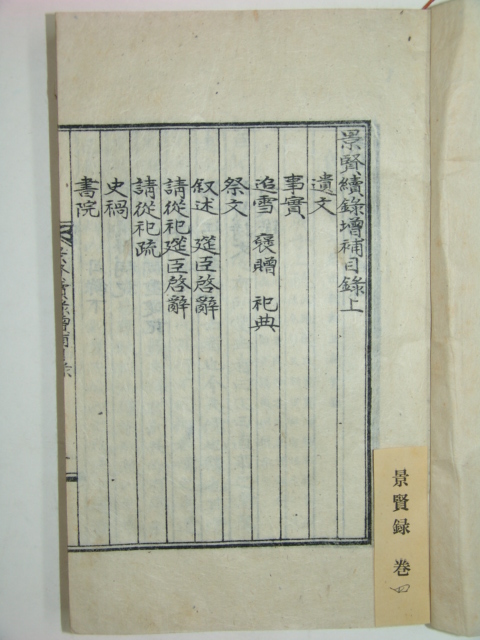 景賢續錄增補目錄上
遺文
事實
追雪 襃贈 祀典
祭文
叙述 筵臣啓辭
請從祀筵臣啓辭
請從祀疏
史禍
書院
景賢録 卷四